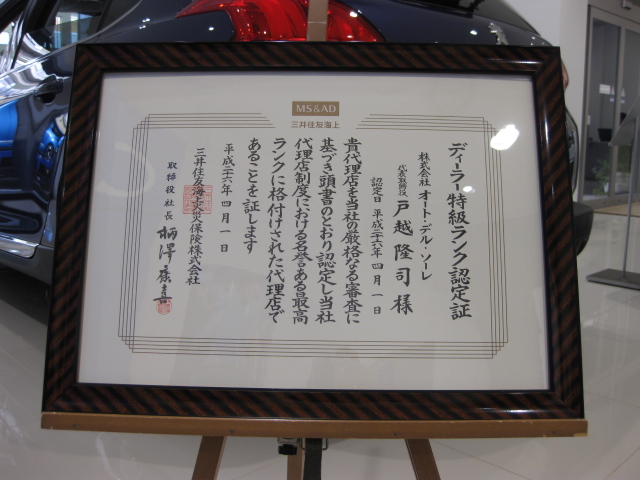 MS&AD
三井住友海上
ディーラー特級ランク認定証
株式会社 オート・デル・ソーレ
代表取締役 戸越隆司 様
認定日 平成二六年四月一日
貴代理店を当社の厳格なる審査に
基づき頭書のとおり認定し当社
代理店制度における名誉ある最高
ランクに格付けされた代理店で
あることを証します
平成二六年四月一日
三井住友海上火災保険株式会社
取締役社長 柄澤康喜